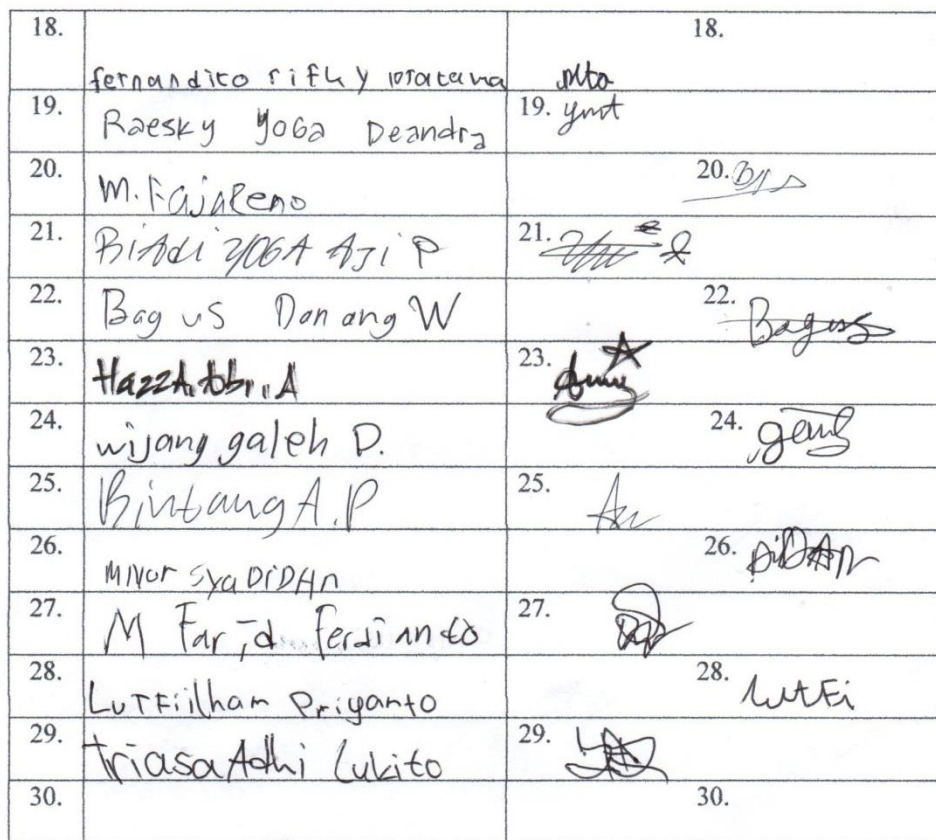 18. 18.
fernandito rifky pratama
19. Raesky yoga Deandra 19.
20. M. FajaReno 20.
21. BiAdi YOGA AJi P 21.
22. Bagus Danang W 22. Bagus
23. 23.
24. wijang galeh D. 24.
25. Bintang A.P 25.
26. 26. DiDAn
27. M Farid Ferdianto 27.
28. LuTFiilham Priyanto 28. LutFi
29. Triasa Adhi Lukito 29.
30. 30.